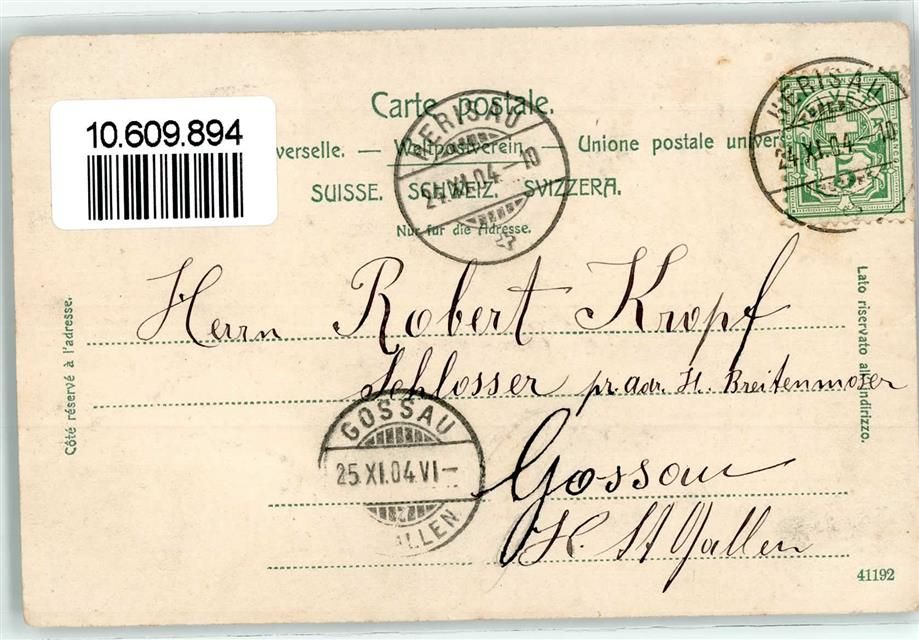 10.609.894
Carte postale.
verselle. — Weltpostverein — Unione postale univers
SUISSE. SCHWEIZ. SVIZZERA.
Nur für die Adresse.
HERISAU
24.XI.04.-10
HERISAU
24.XI.04.-10
5
Côté réservé à l'adresse.
Lato riservato all'indirizzo.
Herrn Robert Kropf
Schlosser pr. adr. H. Breitenmoser
Gossau
Kt. St Gallen
GOSSAU
25.XI.04.VI-
ALLEN
41192